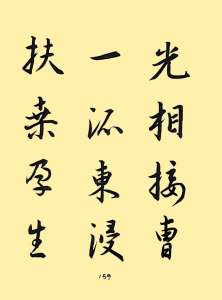 光相接曹
一派東浸
扶桑孕生
159